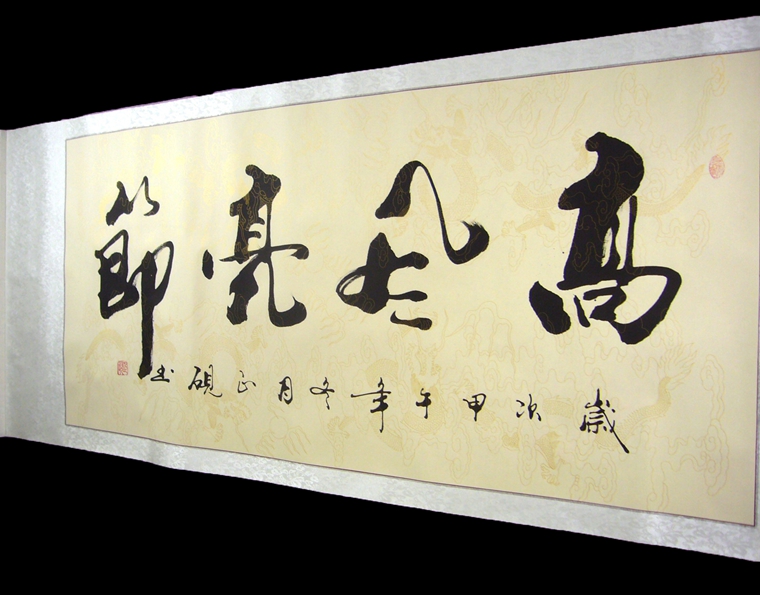 高风亮節
歲次甲午年冬月正硯书